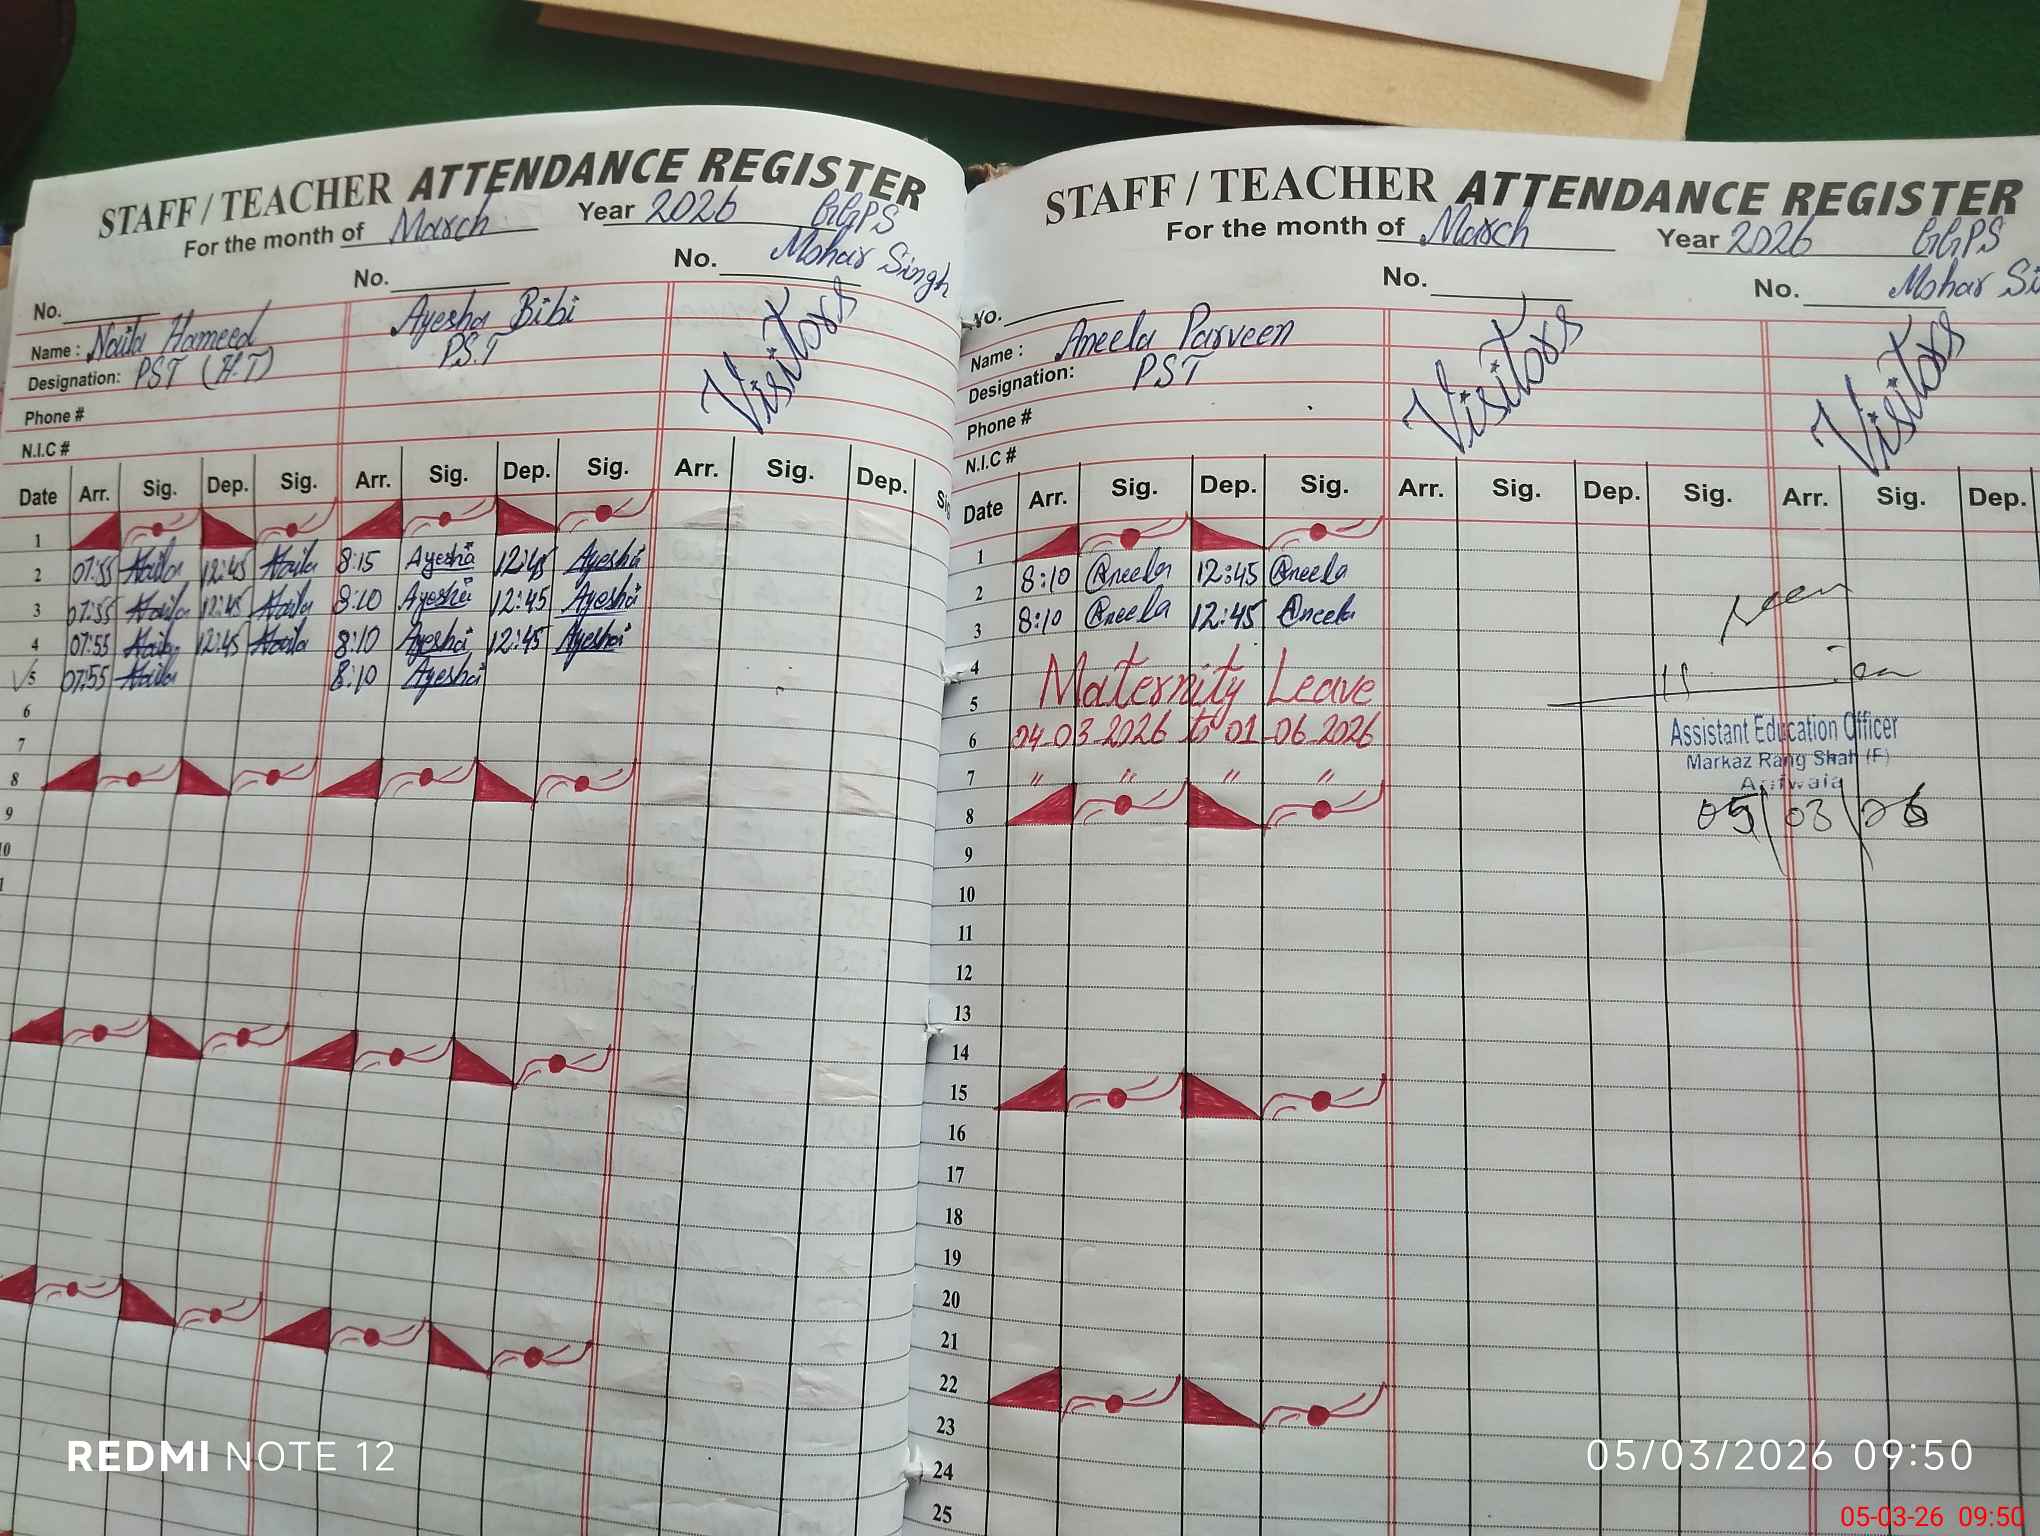 STAFF / TEACHER ATTENDANCE REGISTER
For the month of March Year 2026 GGPS
Mohar Singh
No. No. No.
Name : Naila Hameed Ayesha Bibi Visitors
Designation: PST (H.T) P.S.T
Phone #
N.I.C #
Date Arr. Sig. Dep. Sig. Arr. Sig. Dep. Sig. Arr. Sig. Dep. Sig
1
2 07:55 Naila 12:45 Naila 8:15 Ayesha 12:45 Ayesha
3 07:55 Naila 12:45 Naila 8:10 Ayesha 12:45 Ayesha
4 07:55 Naila 12:45 Naila 8:10 Ayesha 12:45 Ayesha
5 07:55 Naila 8:10 Ayesha
6
7
8
9
10
STAFF / TEACHER ATTENDANCE REGISTER
For the month of March Year 2026 GGPS
Mohar Si
No. No. No.
Name : Aneela Parveen Visitors Visitors
Designation: PST
Phone #
N.I.C #
Date Arr. Sig. Dep. Sig. Arr. Sig. Dep. Sig. Arr. Sig. Dep.
1
2 8:10 @neela 12:45 @neela
3 8:10 @neela 12:45 @neela
4 Maternity Leave
5
6 04-03-2026 to 01-06-2026
7 " " " "
8
9
10
11
12
13
14
15
16
17
18
19
20
21
22
23
24
25
Assistant Education Officer
Markaz Rang Shah (F)
Arifwala
05/03/26
REDMI NOTE 12
05/03/2026 09:50
05-03-26 09:50